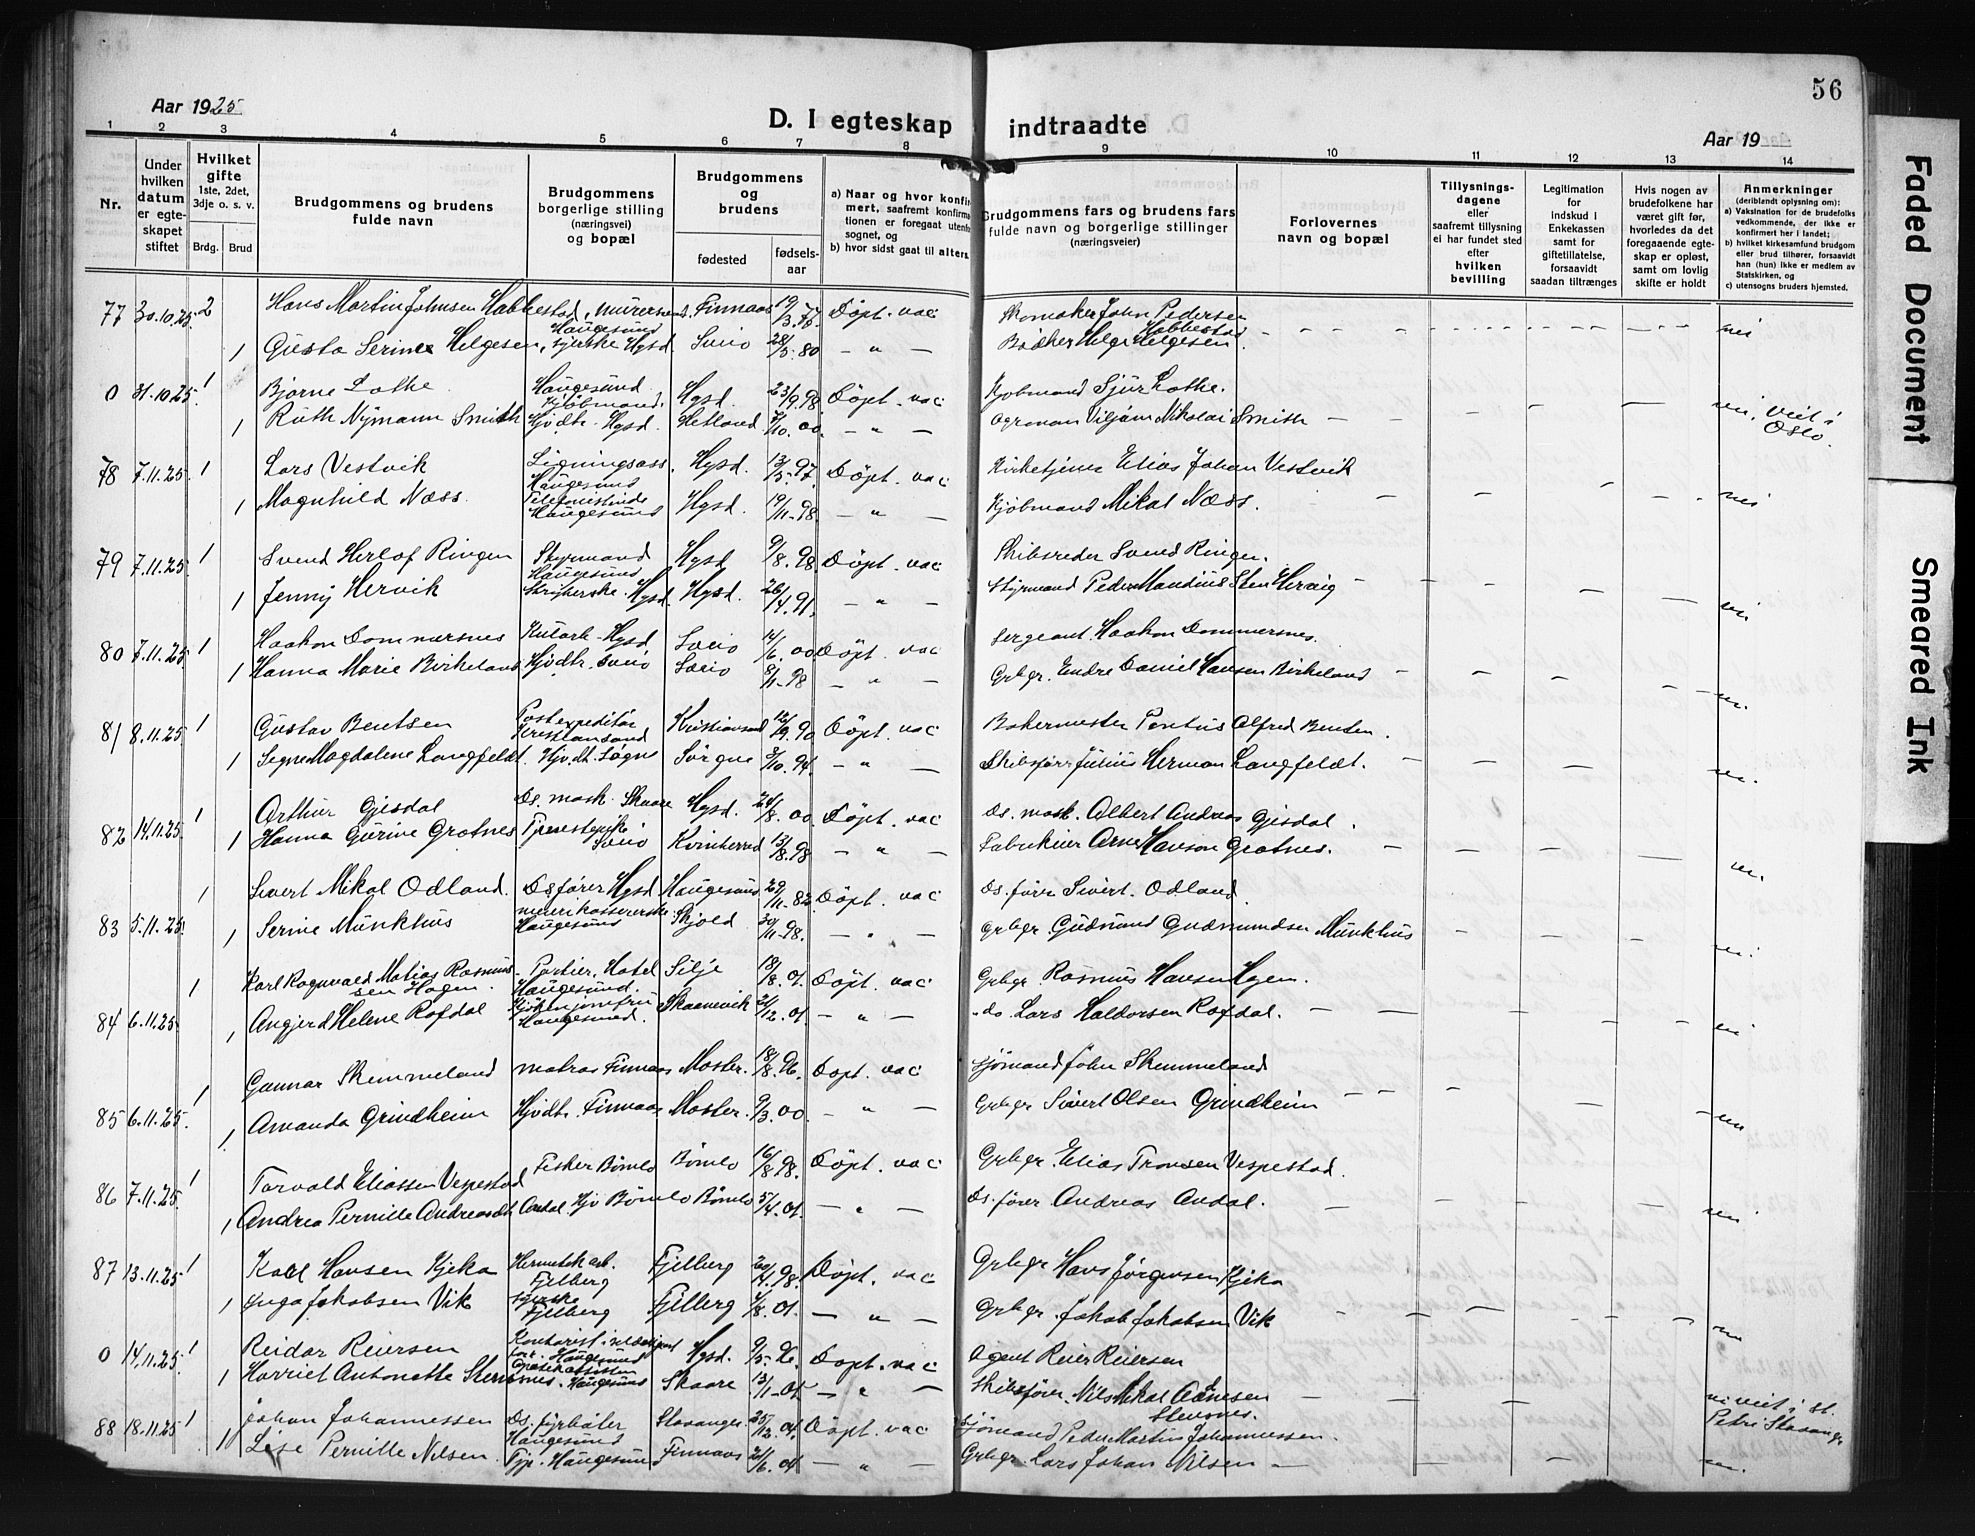 56
Aar 1925
D. I egteskap indtraadte
Aar 19
1 2 3 4 5 6 7 8 9 10 11 12 13 14
Nr.
Under hvilken datum er egteskapet stiftet
Hvilket gifte
1ste, 2det, 3dje o. s. v.
Brdg. Brud
Brudgommens og brudens fulde navn
Brudgommens borgerlige stilling (næringsvei) og bopæl
Brudgommens og brudens
fødested
fødselsaar
a) Naar og hvor konfirmert, saafremt konfirmationen er foregaat utenfor sognet, og
b) hvor sidst gaat til alters.
Brudgommens fars og brudens fars fulde navn og borgerlige stillinger (næringsveier)
Forlovernes navn og bopæl
Tillysningsdagene eller saafremt tillysning ei har fundet sted efter hvilken bevilling
Legitimation for indskud i Enkekassen samt for giftetillatelse, forsaavidt saadan tiltrænges
Hvis nogen av brudefolkene har været gift før, hvorledes da det foregaaende egteskap er opløst, samt om lovlig skifte er holdt
Anmerkninger
(deriblandt oplysning om):
a) Vaksination for de brudefolks vedkommende, der ikke er konfirmert her i landet;
b) hvilket kirkesamfund brudgom eller brud tilhører, forsaavidt han (hun) ikke er medlem av Statskirken, og
c) utensogns bruders hjemsted.
77 30.10.25 2 Hans Martin Johnsen Habbestad, murersv. Haugesund Finnaas 19/3.75 Döpt. vac Skomaker John Pedersen Habbestad nei
1 Gusta Serine Helgesen, syerske Hgsd. Sveio 28/5.80 — " — Bödker Helge Helgesen
0 31.10.25 1 Bjarne Lothe Haugesund Kjöbmand Hgsd. 23/9.98 Döpt. vac Kjöbmand Sjur Lothe. nei, Viet i Oslo.
1 Ruth Nymann Smith Hjvdtr. Hgsd. Hetland /10.00. — " — Agronom Viljam Nikolai Smith
78 7.11.25 1 Lars Vestvik Ligningsass. Haugesund Hgsd. 13/5.97. Döpt. vac Kirketjener Elias Johan Vestvik nei
1 Magnhild Næss. Telefonistinde Haugesund Hgsd. 19/11.98. — " — Kjöbmand Mikal Næss.
79 7.11.25 1 Svend Herlof Ringen Styrmand Haugesund Hgsd 9/8.98. Döpt. vac Skibsreder Svend Ringen.
1 Jenny Hervik Strykerske. Hgsd. Hgsd. 26/4.91. — " — Styrmand Peder Mandius Sten Hervig nei
80 7.11.25 1 Haakon Dommersnes Hgsd Sveio 14/6.00 Döpt. vac Sergeant. Haakon Dommersnes.
1 Hanna Marie Birkeland Hjvdtr. Sveio Sveio 8/11.98 — " — Grbgr. Endre Daniel Hansen Birkeland nei.
81 8.11.25 1 Gustav Bentsen Postexpeditör Kristiansand Kristiansand 12/9.90 Döpt. vac Bakermester Pontus Alfred Bentsen.
1 Signe Magdalene Langfeldt. Hjvdt. Søgne Sörgne 3/10.94. — " — Skibsförer Julius Herman Langfeldt. nei.
82 14.11.25 1 Arthur Gjesdal Ds. mask. Skaare Hgsd. 24/8.00. Döpt. vac Ds. mask. Albert Andreas Gjesdal.
1 Hanna Gurine Grotnes Tjenestepike Sveio Kvinherred 13/8.98 — " — Fabrikeier Arne Hanson Grotnes. nei.
83 5.11.25. 1 Sivert Mikal Odland. Dsförer Hgsd Haugesund 29/11.82. Döpt. vac Ds. förer Sivert. Odland.
1 Serine Munkhus meierikassererske Haugesund Skjold 30/11.98. — " — Grbgr Gudmund Gudmundsen Munkhus nei.
84 6.11.25. 1 Karl Ragnvald Matias Rasmussen Hagen. Portier. Hotel Haugesund. Silje 18/8.01. Döpt. vac Grbgr. Rasmus Hansen Hgen.
1 Angjerd Helene Rafdal Kjökkenjomfru Haugesund. Skaanevik 21/12.01. — " — do. Lars Haldorsen Rafdal. nei
85 6.11.25. 1 Gunnar Skimmeland matros Finnaas Moster. 18/8.96. Döpt. vac Sjömand John Skimmeland
1 Amanda Grindheim Hjvdtr. Finnaas Moster. 9/3.00. — " — Grbgr Sivert Olsen Grindheim nei
86 7.11.25 1 Torvald Eliassen Vespestad Fisker Bömlo Bömlo 16/8.98. Döpt. vac Grbgr. Elias Tronsen Vespestad.
1 Andrea Pernille Andreasdt. Andal. Hjv Bömlo Bömlo 5/4.01. — " — Ds. förer Andreas Andal. nei
87 13.11.25 1 Karl Hansen Kjeka Hermetikarb. Fjelberg Fjelberg 20/4.98. Döpt. vac Grbgr. Hans Jörgensen Kjeka
1 Inga Jakobsen Vik syerske Fjelberg Fjelberg /8.01. — " — Grbgr. Jakob Jakobsen Vik nei
0 14.11.25. 1 Reidar Reiersen Kontorist Haugesund Hgsd. 9/5.96. Döpt. vac Agent Reier Reiersen
1 Harriet Antonette Stensnes. Haugesund Skaare 13/1.01. — " — Skibsförer. Nils Mikal Aanesen Stensnes. nei viet i St. Petri Stavanger
88 18.11.25 1 Johan Johannessen Ds. fyrböter Haugesund Stavanger. 25/12.04. Döpt. vac Sjömand Peder Martin Johannessen.
1 Lise Pernille Nilsen. Tjp. Haugesund Finnaas 21/6.04 — " — Grbgr. Lars Johan Nilsen nei.
Faded Document
Smeared Ink